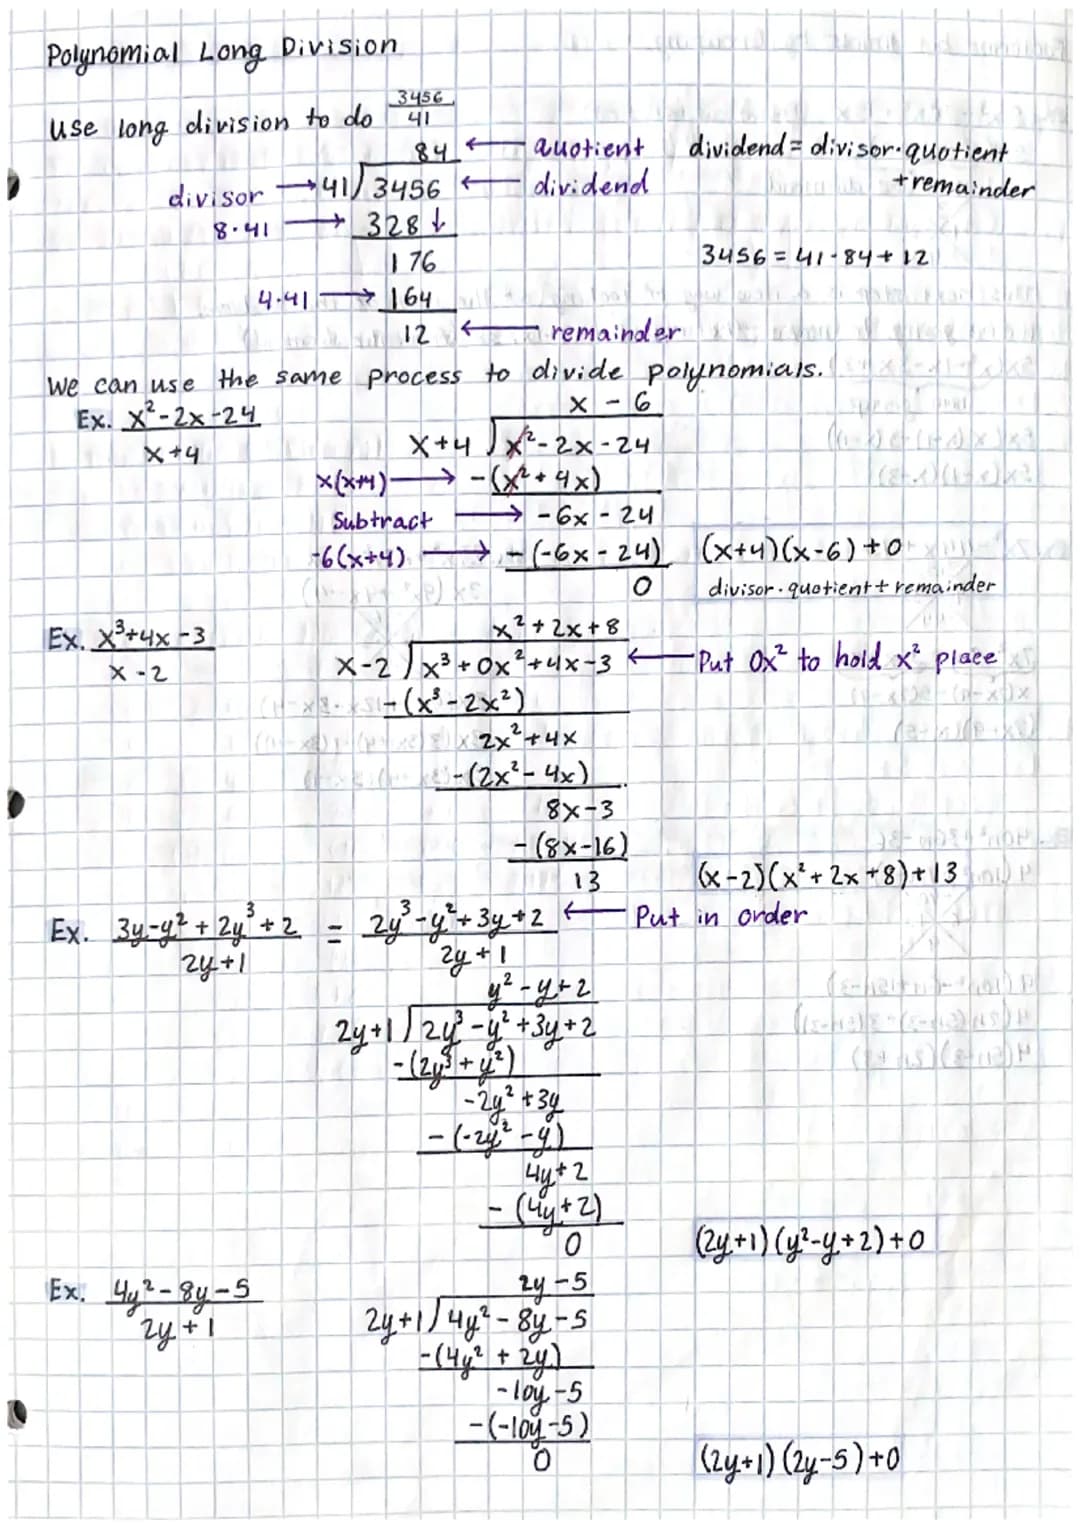 Polynomial Long Division
Use long division to do 3456/41
84 ← quotient
dividend = divisor · quotient + remainder
divisor → 41) 3456 ← dividend
8·41 → 328 ↓
176
3456 = 41 · 84 + 12
4·41 → 164
12 ← remainder
We can use the same process to divide polynomials.
Ex. x²-2x-24 / x+4
x - 6
x+4 ) x²-2x-24
x(x+4) → -(x²+4x)
Subtract → -6x-24
-6(x+4) → -(-6x-24)
0
(x+4)(x-6)+0
divisor · quotient + remainder
Ex. x³+4x-3 / x-2
x²+2x+8
x-2 ) x³+0x²+4x-3 ← Put 0x² to hold x² place
-(x³-2x²)
2x²+4x
-(2x²-4x)
8x-3
-(8x-16)
13
(x-2)(x²+2x+8)+13
Ex. 3y-y²+2y³+2 / 2y+1 = 2y³-y²+3y+2 / 2y+1 ← Put in order
y²-y+2
2y+1 ) 2y³-y²+3y+2
-(2y³+y²)
-2y²+3y
-(-2y²-y)
4y+2
-(4y+2)
0
(2y+1)(y²-y+2)+0
Ex. 4y²-8y-5 / 2y+1
2y-5
2y+1 ) 4y²-8y-5
-(4y²+2y)
-10y-5
-(-10y-5)
0
(2y+1)(2y-5)+0